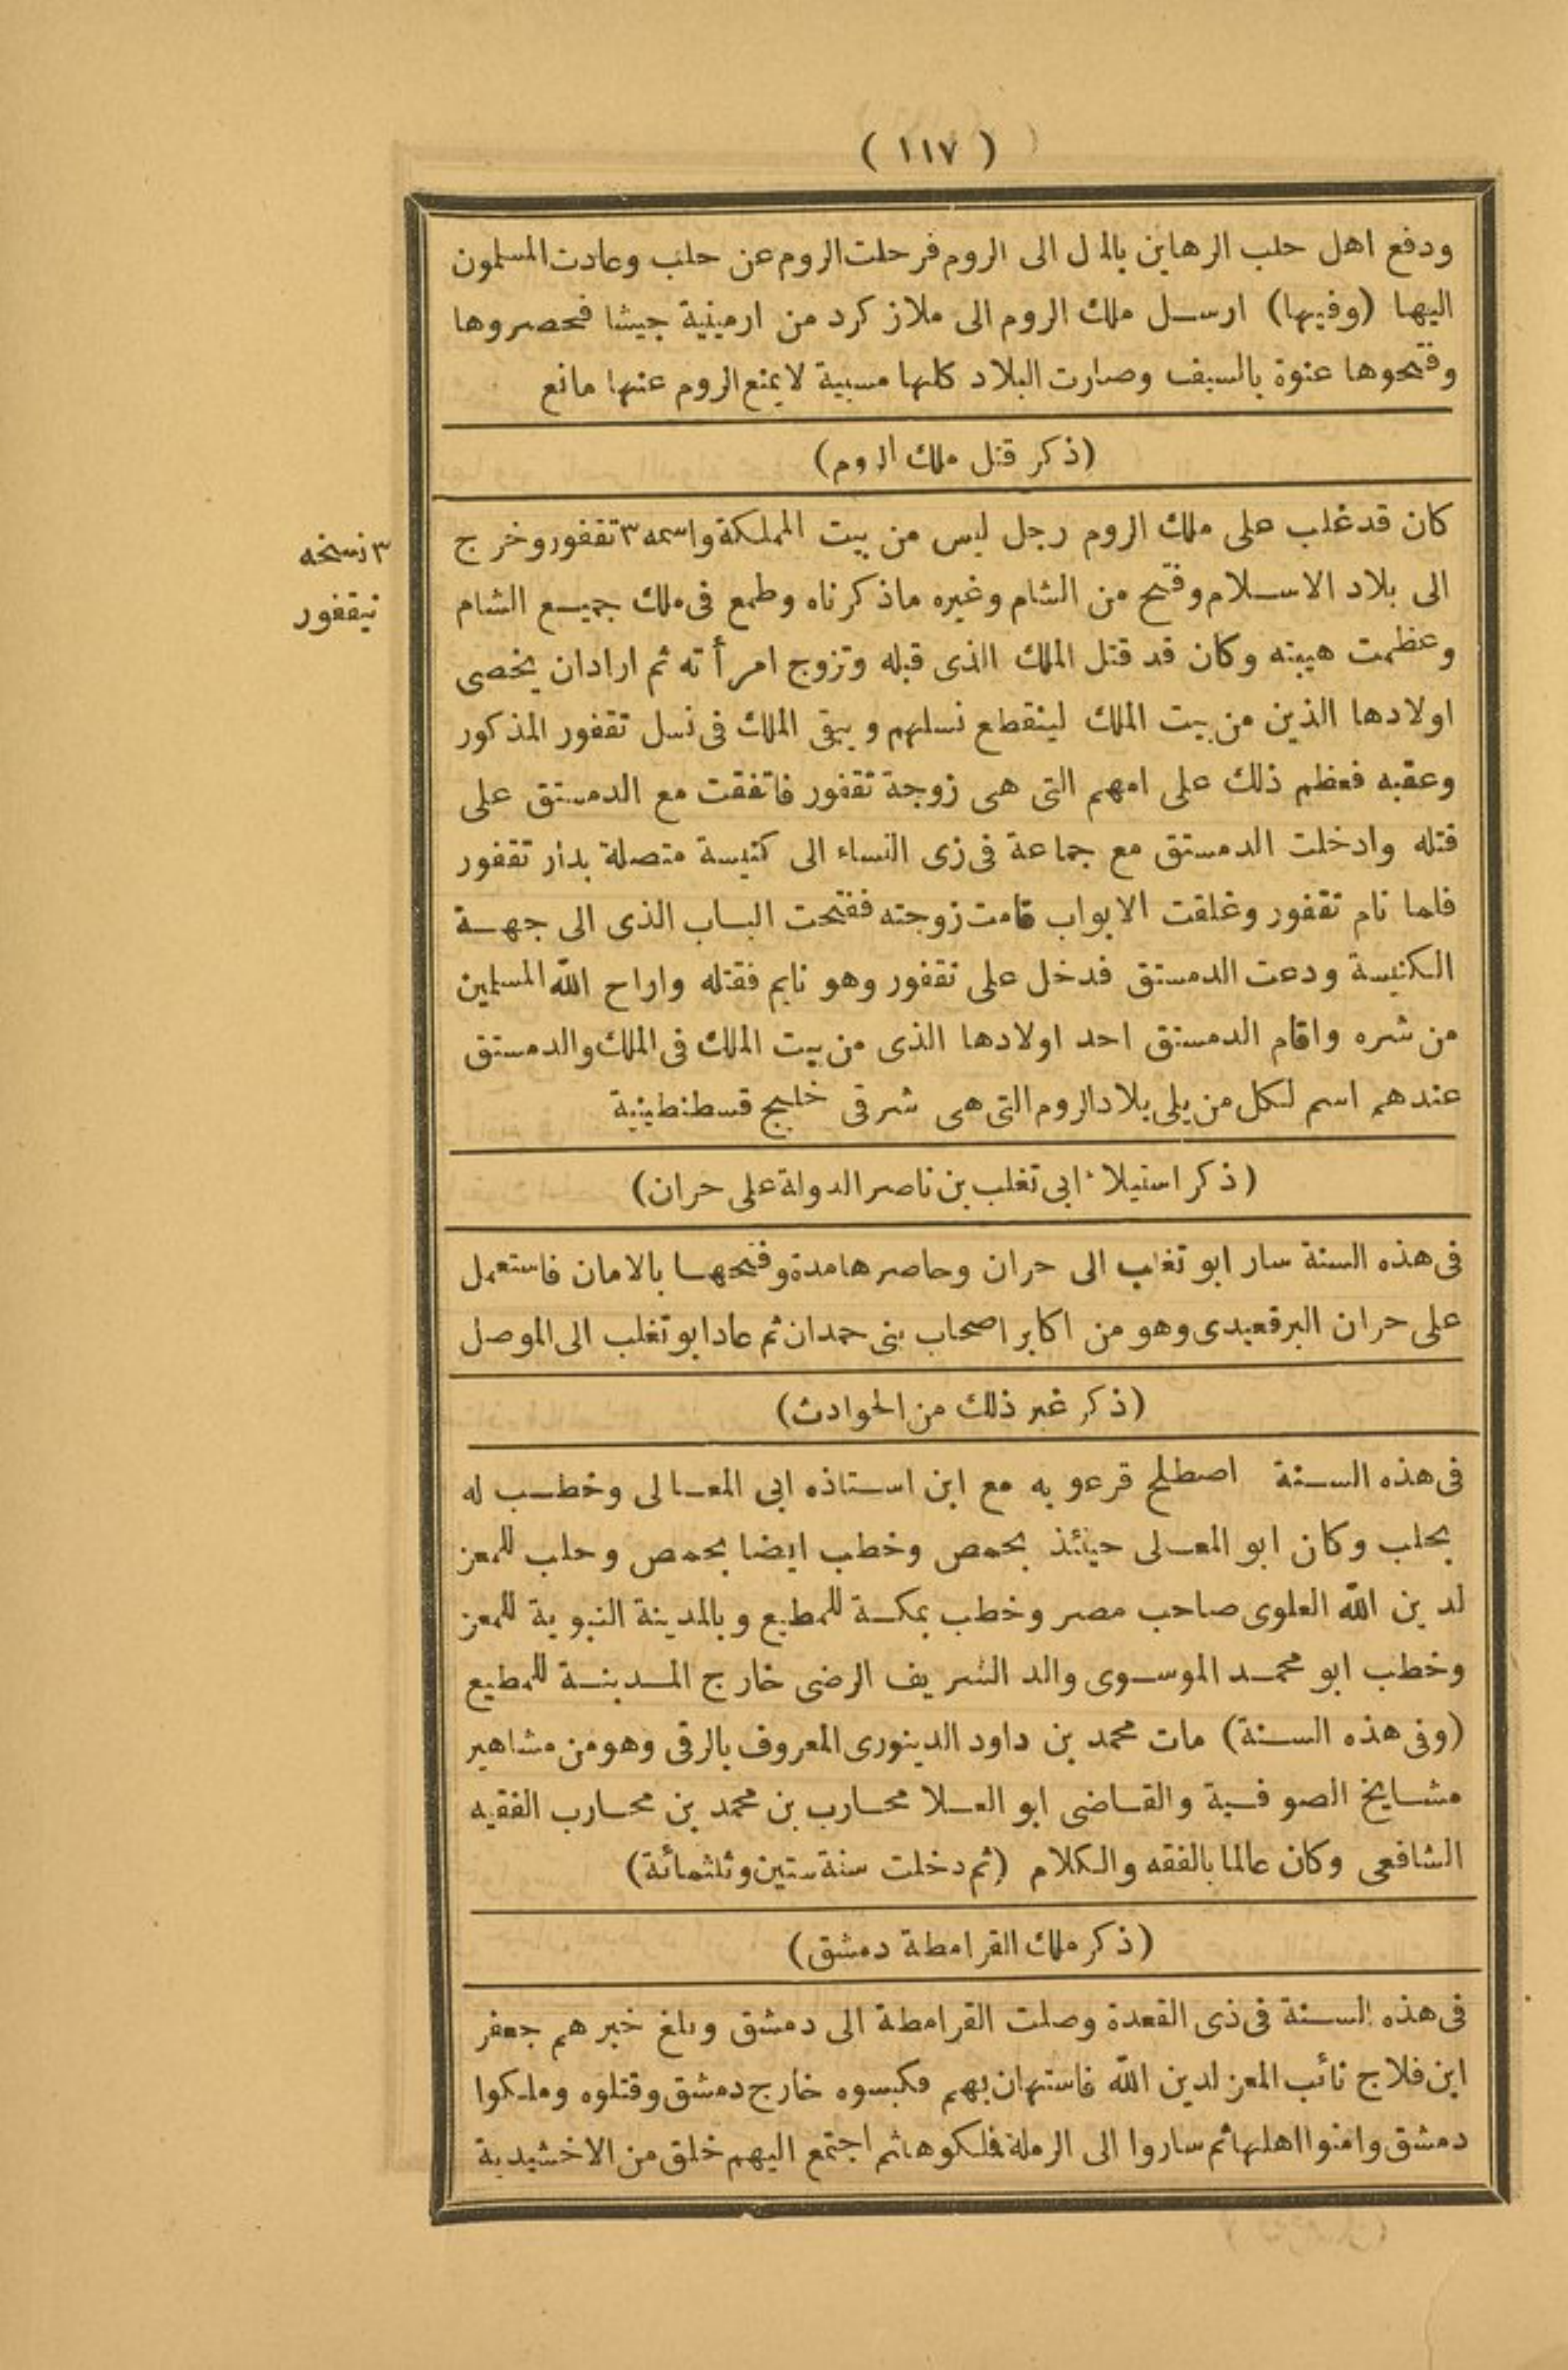 ( ١١٧ )
ودفع اهل حلب الرهاين بالمال الى الروم فرحلت الروم عن حلب وعادت المسلمون
اليها (وفيها) ارسل ملك الروم الى ملازكرد من ارمينية جيشا فحصروها
وفتحوها عنوة بالسيف وصارت البلاد كلها مسبية لايمنع الروم عنها مانع
(ذكر قتل ملك الروم)
كان قد غلب على ملك الروم رجل ليس من بيت المملكة واسمه ٣ تقفور وخرج
٣ نسخه
نيقفور
الى بلاد الاسلام وفتح من الشام وغيره ماذكرناه وطمع فى ملك جميع الشام
وعظمت هيبته وكان قد قتل الملك الذى قبله وتزوج امرأته ثم ارادان يخصى
اولادها الذين من بيت الملك لينقطع نسلهم ويبقى الملك فى نسل تقفور المذكور
وعقبه فعظم ذلك على امهم التى هى زوجة تقفور فاتفقت مع الدمستق على
قتله وادخلت الدمستق مع جماعة فى زى النساء الى كنيسة متصلة بدار تقفور
فلما نام تقفور وغلقت الابواب قامت زوجته ففتحت الباب الذى الى جهة
الكنيسة ودعت الدمستق فدخل على نقفور وهو نايم فقتله واراح الله المسلمين
من شره واقام الدمستق احد اولادها الذى من بيت الملك فى الملك والدمستق
عندهم اسم لكل من يلى بلاد الروم التى هى شرقى خليج قسطنطينية
(ذكر استيلاء ابى تغلب بن ناصر الدولة على حران)
فى هذه السنة سار ابو تغلب الى حران وحاصرها مدة وفتحها بالامان فاستعمل
على حران البرقعيدى وهو من اكابر اصحاب بنى حمدان ثم عاد ابو تغلب الى الموصل
(ذكر غير ذلك من الحوادث)
فى هذه السنة اصطلح قرعويه مع ابن استاذه ابى المعالى وخطب له
بحلب وكان ابو المعالى حينئذ بحمص وخطب ايضا بحمص وحلب للمعز
لدين الله العلوى صاحب مصر وخطب بمكة للمطيع وبالمدينة النبوية للمعز
وخطب ابو محمد الموسوى والد الشريف الرضى خارج المدينة للمطيع
(وفى هذه السنة) مات محمد بن داود الدينورى المعروف بالرقى وهو من مشاهير
مشايخ الصوفية والقاضى ابو العلا محارب بن محمد بن محارب الفقيه
الشافعى وكان عالما بالفقه والكلام (ثم دخلت سنة ستين وثلثمائة)
(ذكر ملك القرامطة دمشق)
فى هذه السنة فى ذى القعدة وصلت القرامطة الى دمشق وبلغ خبرهم جعفر
ابن فلاح نائب المعز لدين الله فاستهان بهم فكبسوه خارج دمشق وقتلوه وملكوا
دمشق وامنوا اهلها ثم ساروا الى الرملة فملكوها ثم اجتمع اليهم خلق من الاخشيدية